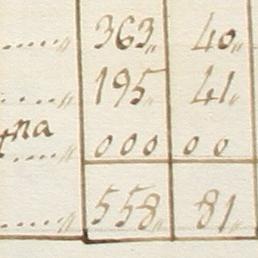 363 40
195 41
na 000 00
558 81